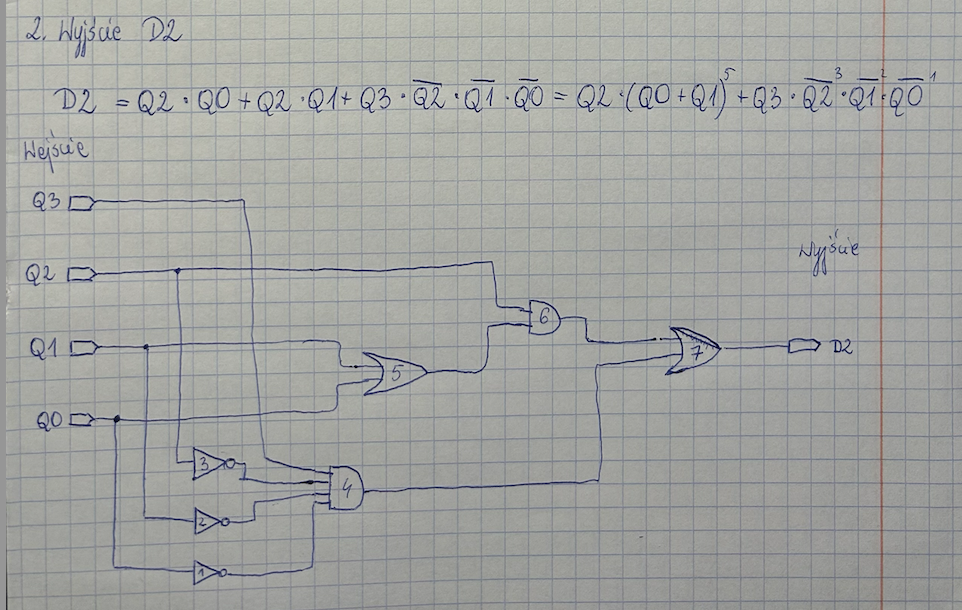 2. Wyjście D2
D2 = Q2 · Q0 + Q2 · Q1 + Q3 · Q̅2̅ · Q̅1̅ · Q̅0̅ = Q2 · (Q0 + Q1)⁵ + Q3 · Q̅2̅³ · Q̅1̅² · Q̅0̅¹
Wejście
Q3
Wyjście
Q2
6
Q1
5
7
D2
Q0
3
4
2
1